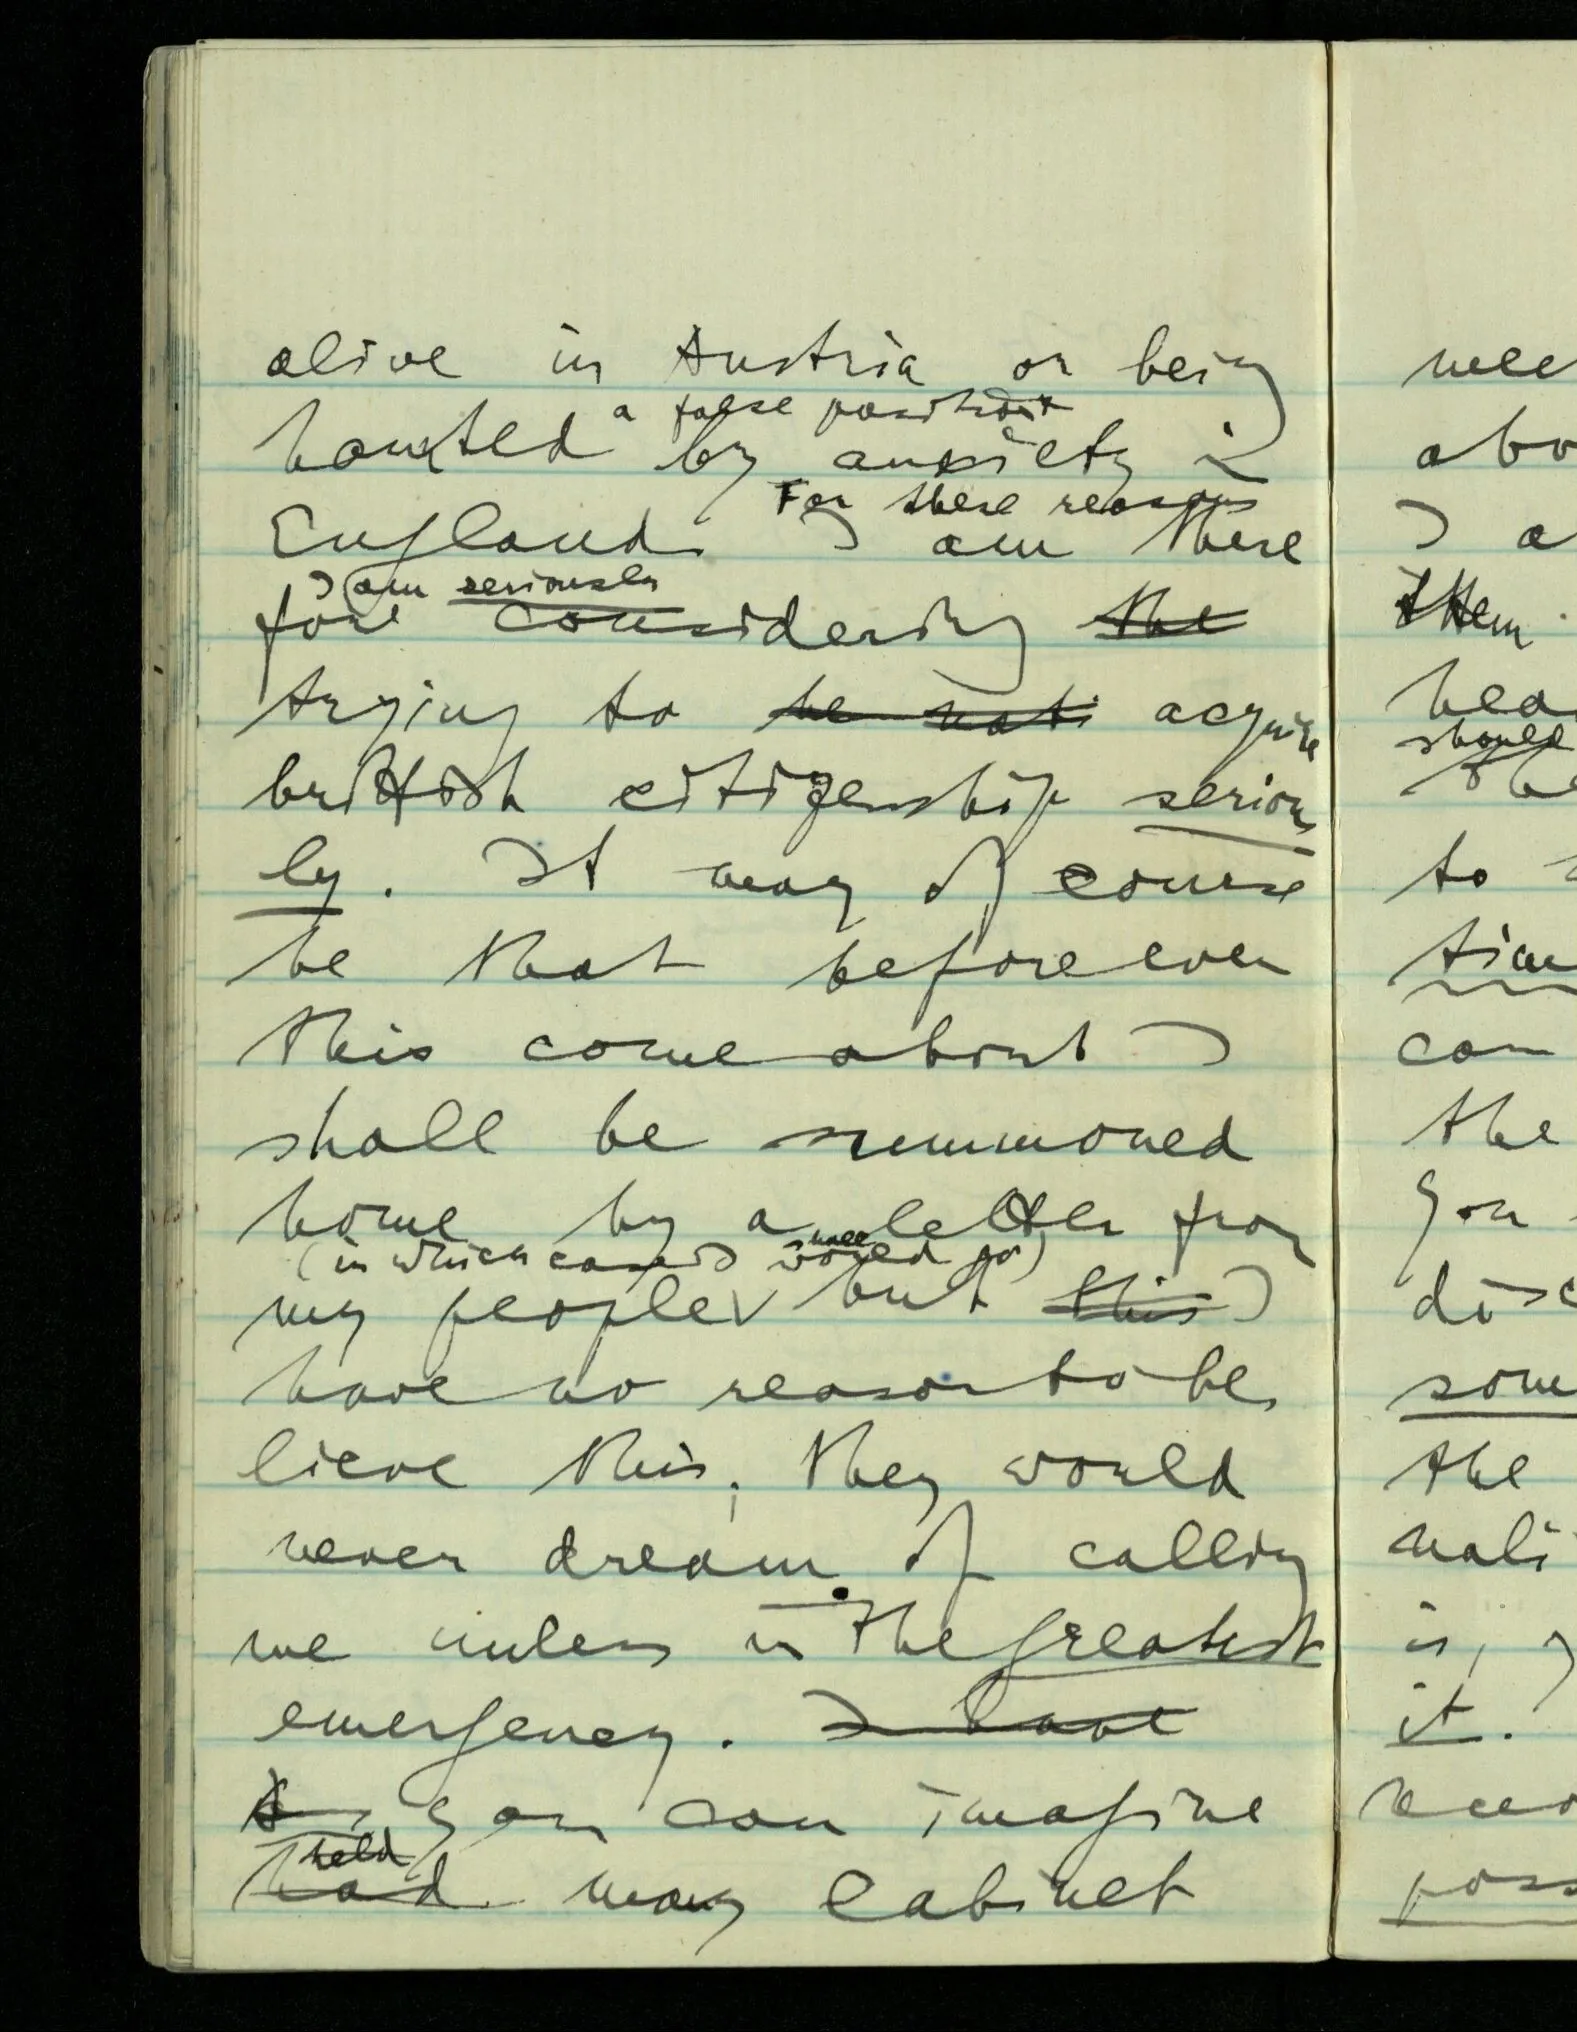 alive in Austria or being
a false position
haunted by anxiety in
England. I am there
For these reasons
fore considering the
I am seriously
trying to be nati acquire
brittish citizenship serious
ly. It may of course
be that before even
this come about I
shall be summoned
home by a letter from
(in which case I would go)
my people but this I
have no reason to be
lieve this; they would
never dream of calling
me unless in the greatest
emergency. I have
you can imagine
held
had many cabinet
nee
abo
I a
them.
hea
should
the
to
tim
can
the
you
disc
some
the
nati
is,
it.
poss